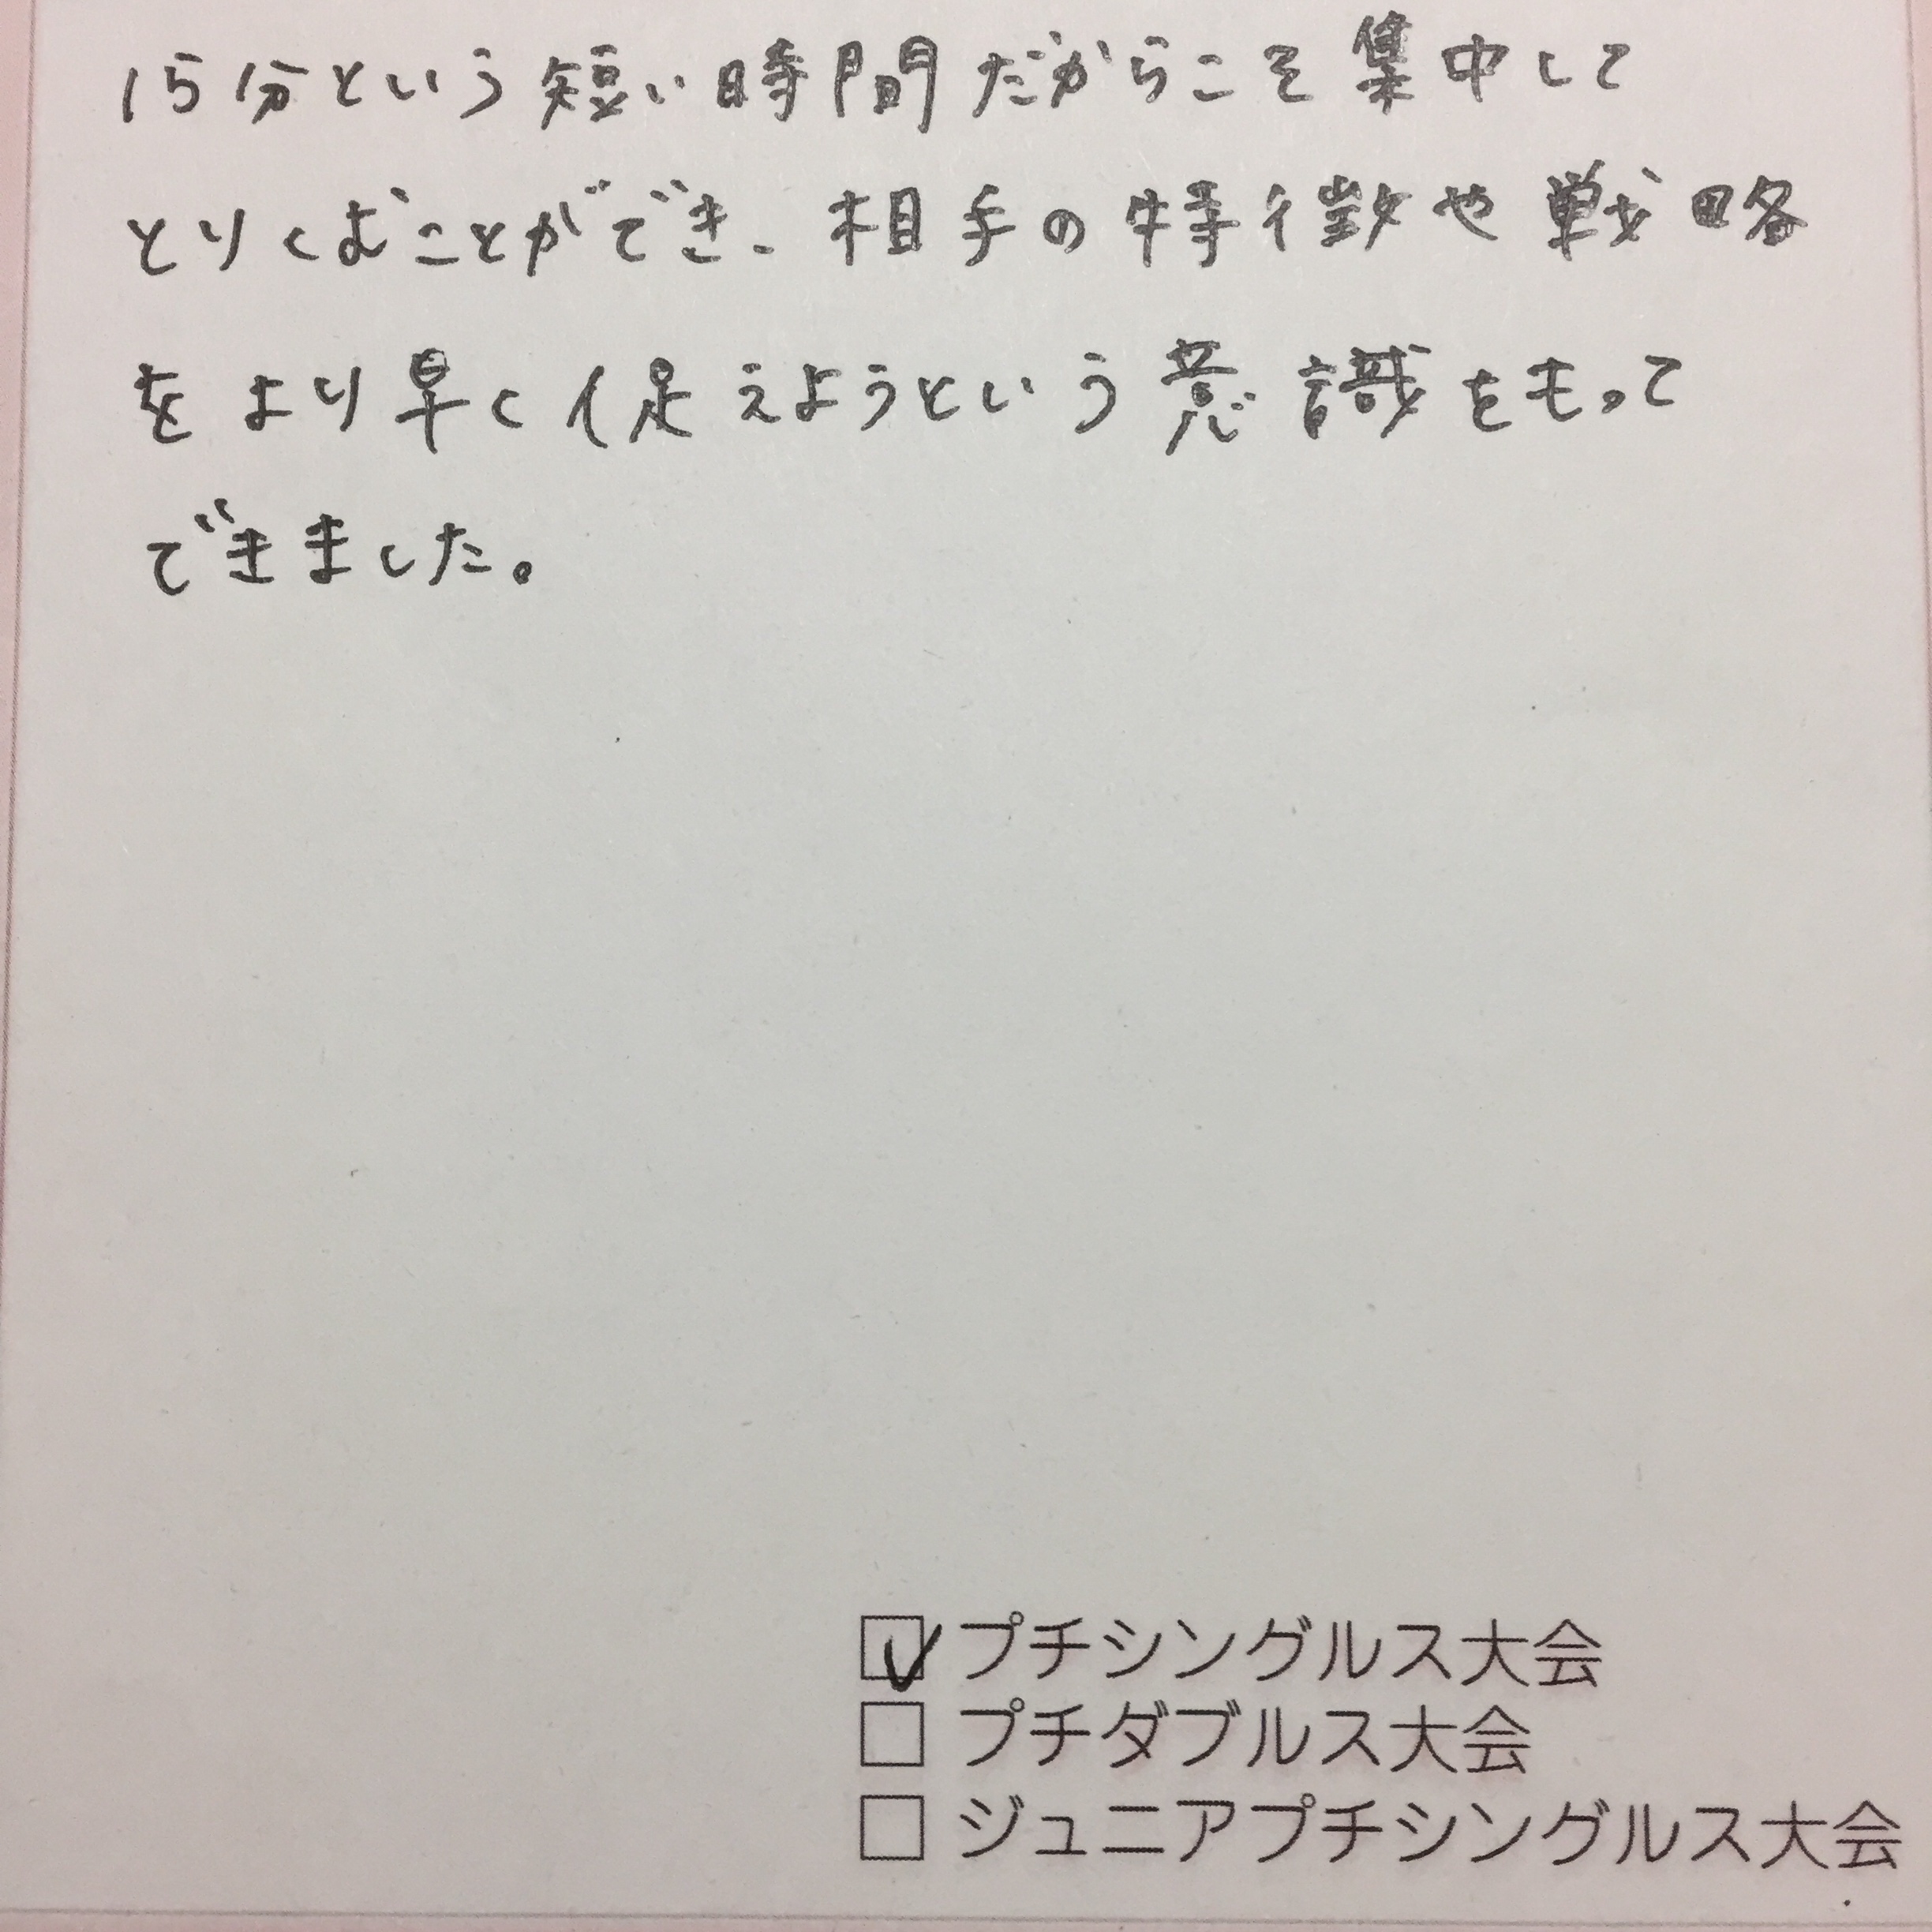 15分という短い時間だからこそ集中して
とりくむことができ、相手の特徴や戦略
をより早く促えようという意識をもって
できました。
☑プチシングルス大会
☐プチダブルス大会
☐ジュニアプチシングルス大会